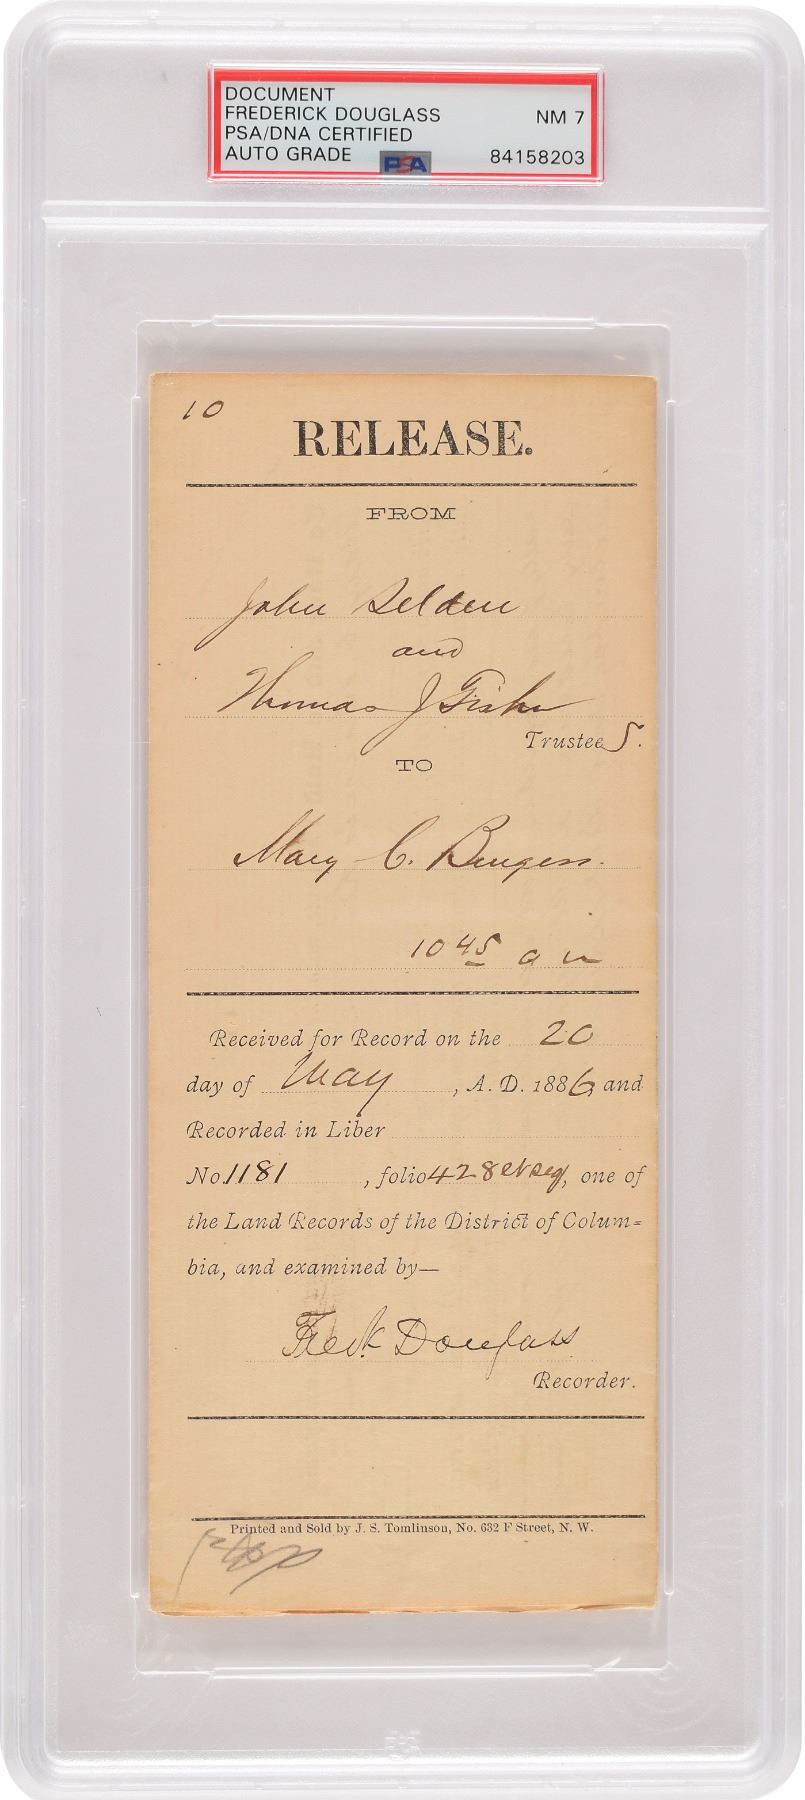 DOCUMENT
FREDERICK DOUGLASS
PSA/DNA CERTIFIED
AUTO GRADE
NM 7
PSA
84158203
10
RELEASE.
FROM
John Selden
and
Thomas J Fisher
Trustees.
TO
Mary C. Burgess.
10 45 a m
Received for Record on the 20
day of May, A. D. 1886, and
Recorded in Liber
No. 1181, folio 428 et seq, one of
the Land Records of the District of Colum=
bia, and examined by—
Fredk Douglass
Recorder.
Printed and Sold by J. S. Tomlinson, No. 632 F Street, N. W.